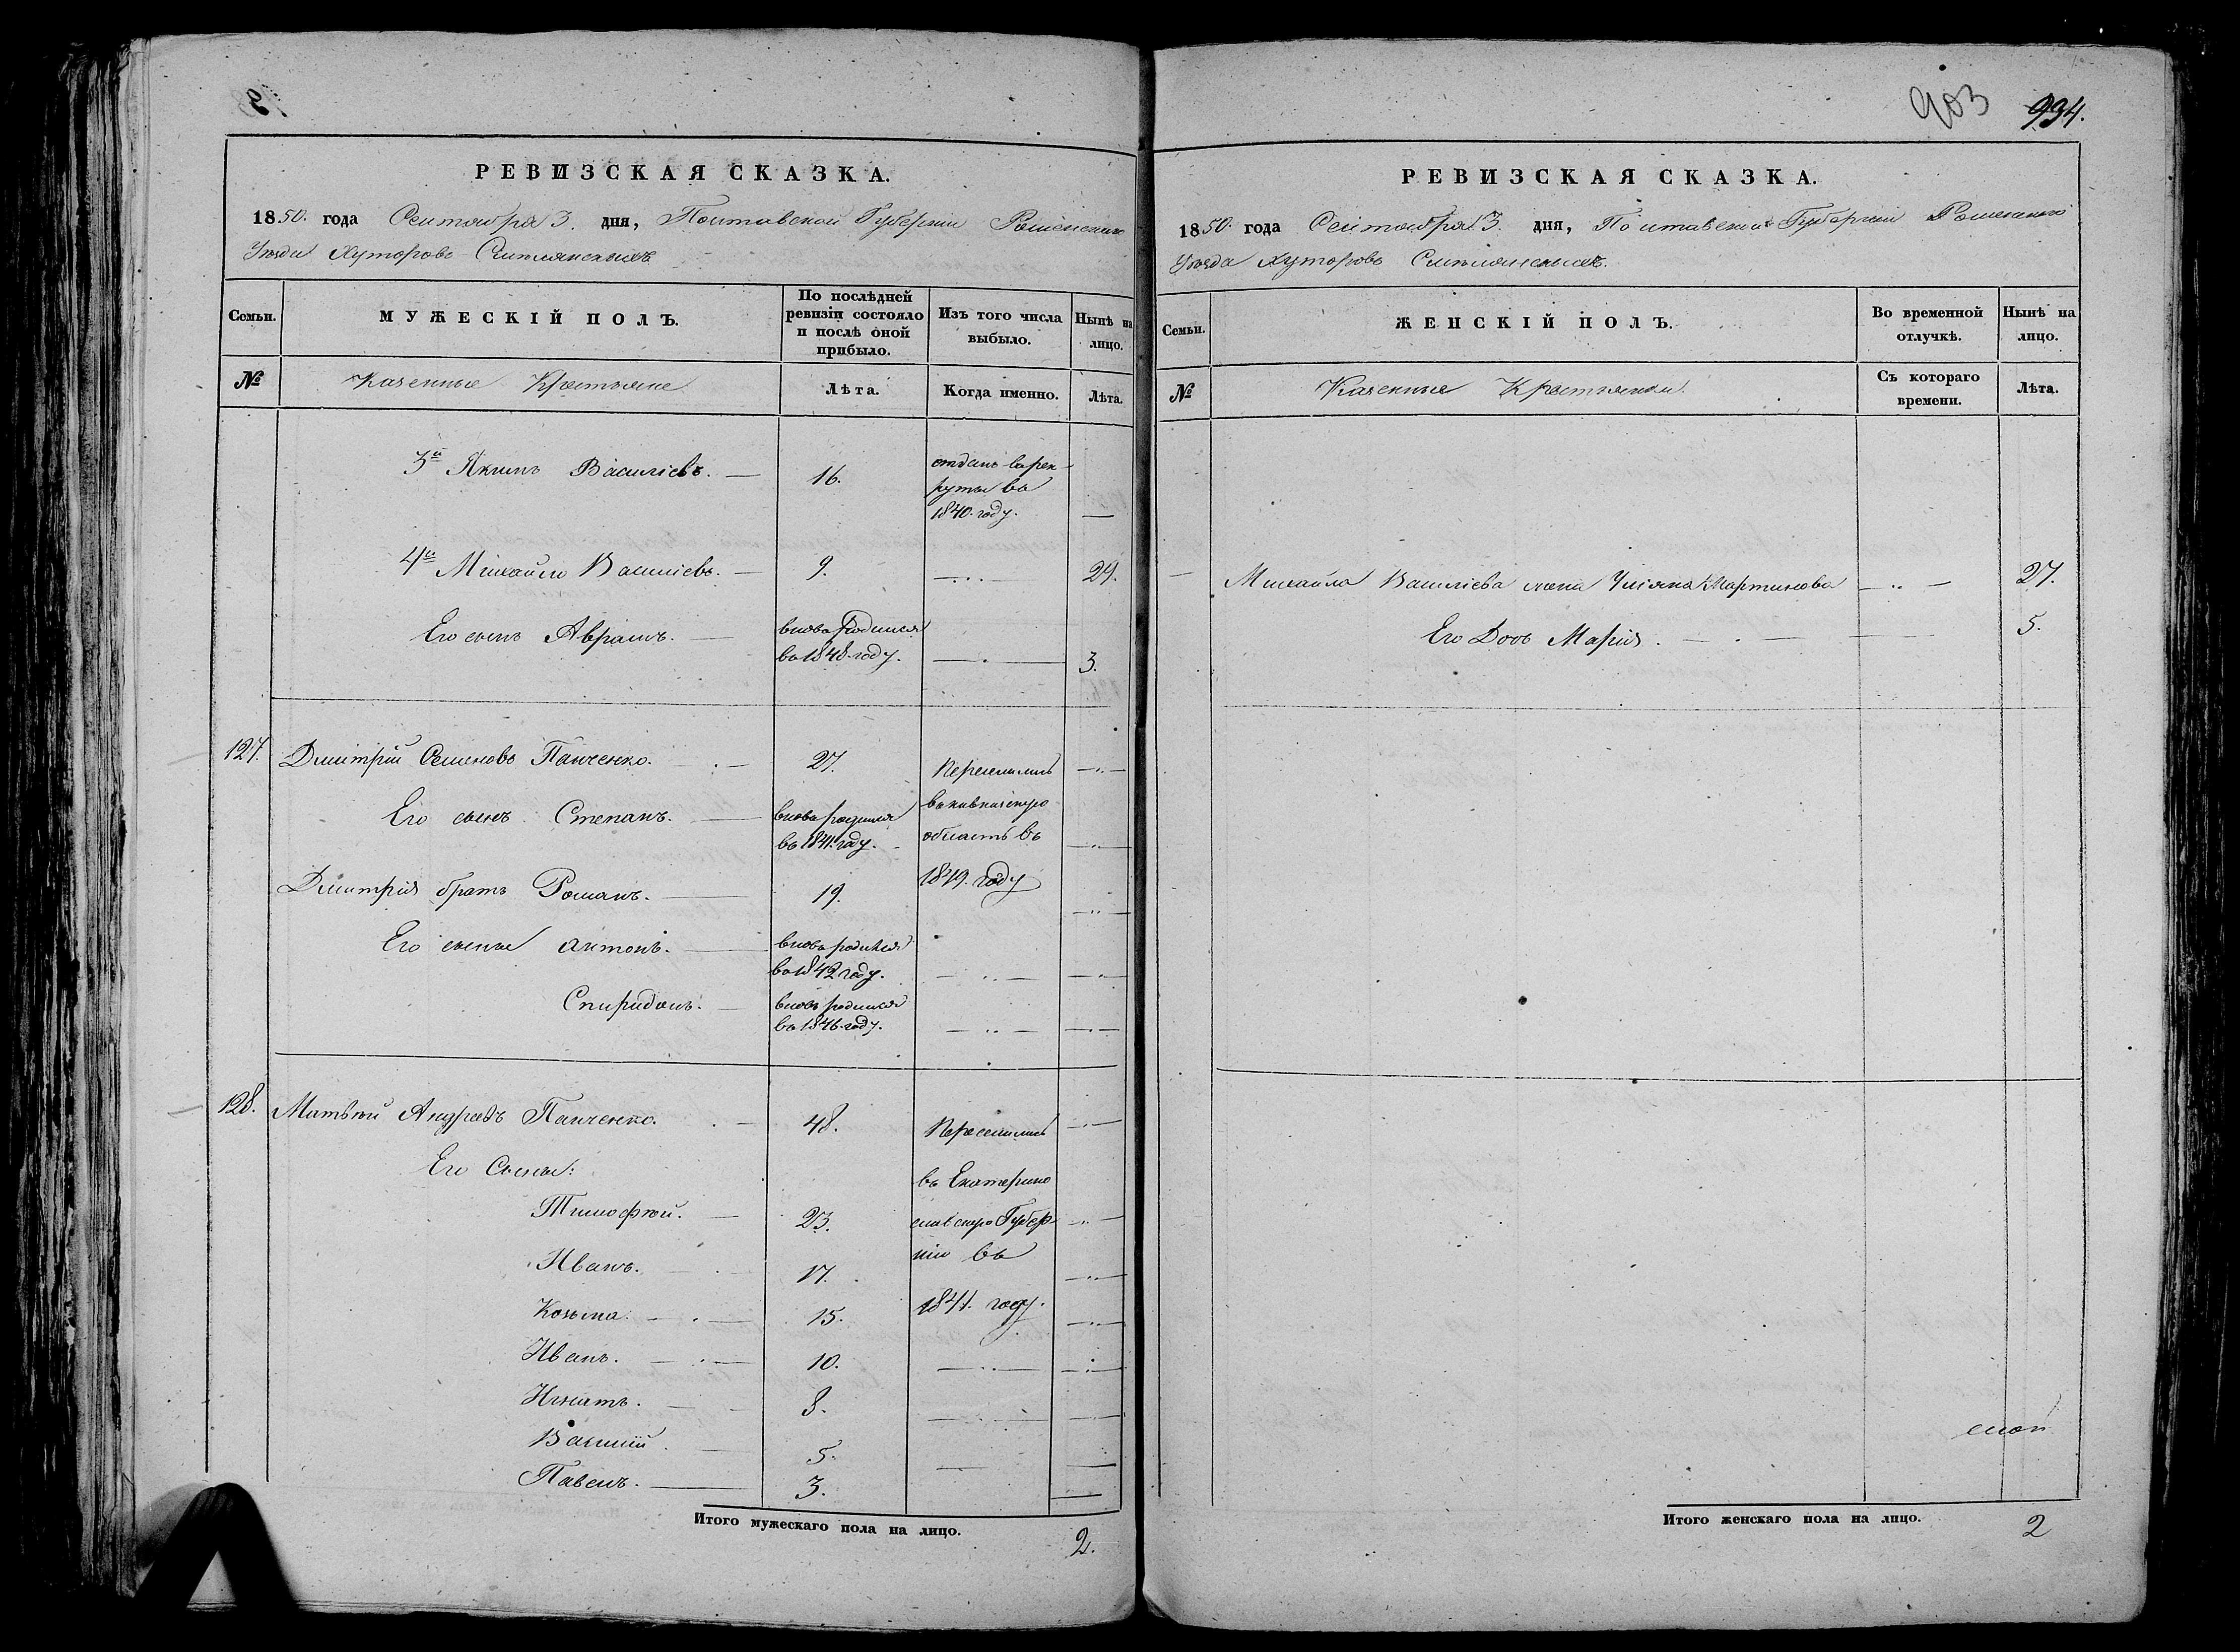 903 934.
РЕВИЗСКАЯ СКАЗКА.
1850. года Сентября 3. дня, Полтавской Губернии Роменского
Уезда Хуторовъ
Семьи.
МУЖЕСКІЙ ПОЛЪ.
По послѣдней
ревизіи состояло
и послѣ оной
прибыло.
Изъ того числа
выбыло.
Нынѣ на
лицо.
№
Казенные Крестьяне
Лѣта.
Когда именно.
Лѣта.
3й Якимъ Василіевъ. 16. отданъ в рек-
руты въ
1840. году.
4й Михайло Василіевъ. 9. 24.
Его сынъ Аврамъ. вновь родился
въ 1848 году. 3.
127. Дмитрій Семеновъ Панченко. 27. Переселились
Его сынъ Степанъ. вновь родился
въ 1841. году.
въ кавказскую
область въ
1849. году
Дмитрія братъ Романъ. 19.
Его сыны Антонъ. вновь родился
въ 1842 году.
Спиридонъ. вновь родился
въ 1846. году.
128. Матвѣй Андреевъ Панченко. 48. Переселились
Его Сыны: въ Екатерино
Тимофей. 23. славскую Губер-
нію въ
Иванъ. 17.
Козьма. 15. 1841. году.
Иванъ. 10.
Игнатъ. 8.
Василій. 5.
Павелъ. 3.
Итого мужескаго пола на лицо. 2.
РЕВИЗСКАЯ СКАЗКА.
1850. года Сентября 3. дня, Полтавской Губернии Роменского
Уезда Хуторовъ
Семьи.
ЖЕНСКІЙ ПОЛЪ.
Во временной
отлучкѣ.
Нынѣ на
лицо.
№
Казенные Крестьянки.
Съ котораго
времени.
Лѣта.
Михайла Василіева жена Уліяна Мартинова 27.
Его Дочь Марія. 5.
Итого женскаго пола на лицо. 2